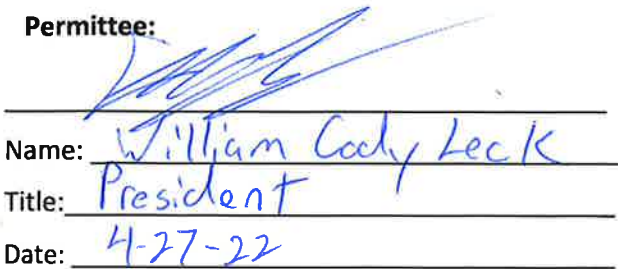 Permittee:
Name: William Cody Leck
Title: President
Date: 4-27-22